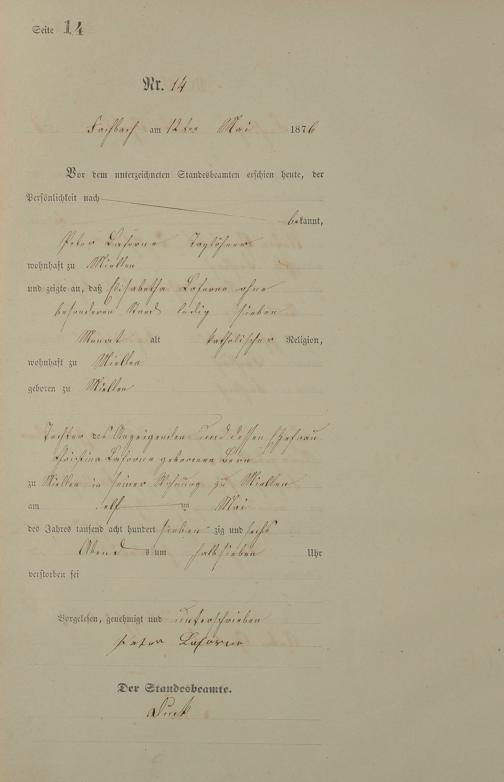 Seite 14
Nr. 14
Fachbach am 12ten Mai 1876
Vor dem unterzeichneten Standesbeamten erschien heute, der
Persönlichkeit nach
bekannt,
Peter Laforne Taglöhner
wohnhaft zu Miellen
und zeigte an, daß Elisabetha Laforne ohne
besonderen Stand ledig sieben
Monat alt katholischer Religion,
wohnhaft zu Miellen
geboren zu Miellen
Tochter des Anzeigenden und dessen Ehefrau
Christina Laforne geborene
zu Miellen in seiner Wohnung zu Miellen
am elf ten Mai
des Jahres tausend acht hundert sieben zig und sechs
Abend s um halb sieben Uhr
verstorben sei
Vorgelesen, genehmigt und unterschrieben
Peter Laforne
Der Standesbeamte.